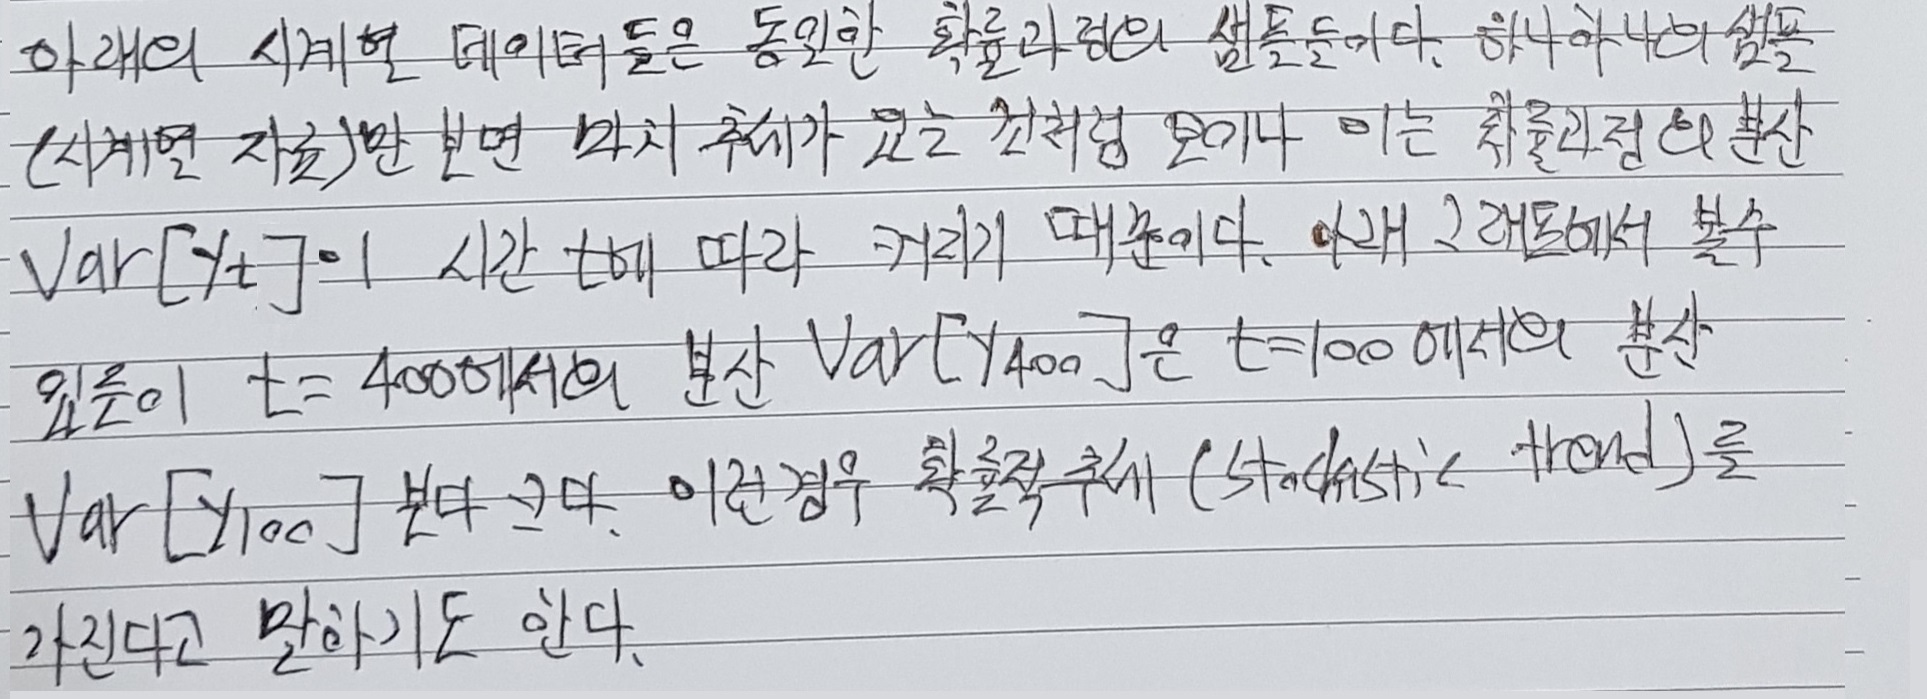 아래의 시계열 데이터들은 동일한 확률과정의 샘플들이다. 하나하나의 샘플
(시계열 자료)만 보면 마치 추세가 있는 것처럼 보이나 이는 확률과정의 분산
Var[Yt]이 시간 t에 따라 커지기 때문이다. 아래 그래프에서 볼수
있듯이 t=400에서의 분산 Var[Y400]은 t=100에서의 분산
Var[Y100] 보다 크다. 이런경우 확률적 추세 (stochastic trend)를
가진다고 말하기도 한다.